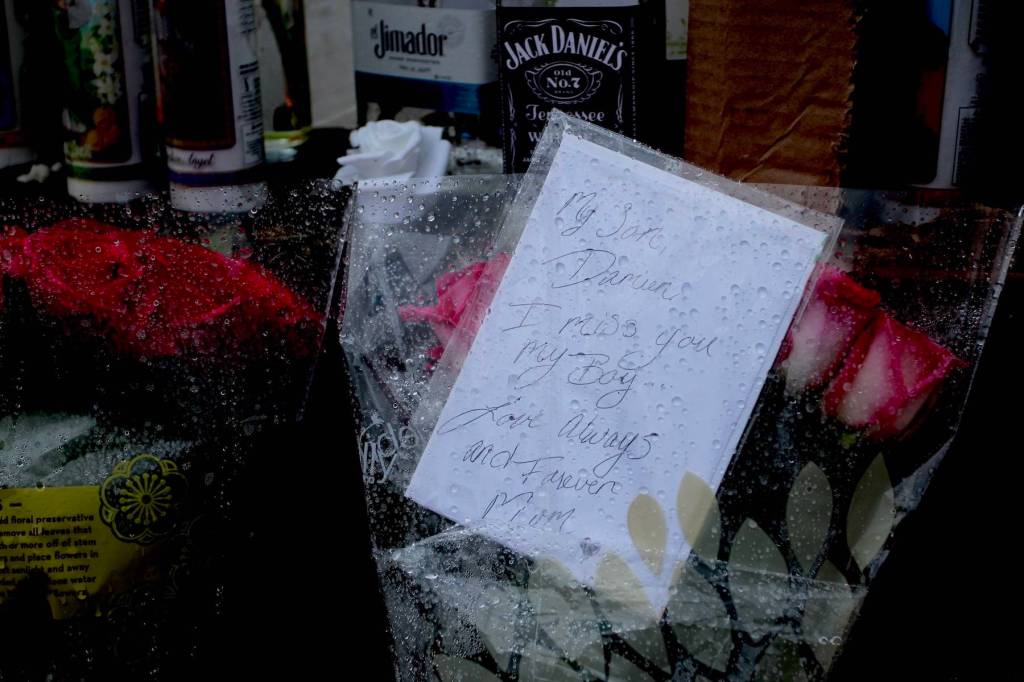 el Jimador
JACK DANIEL'S
Old
No. 7
BRAND
Tennessee
My Son,
Darrien
I miss you
my Boy
Love Always
and Forever
Mom
floral preservative
remove all leaves that
or more off of stem
and place flowers in
sunlight and away
water